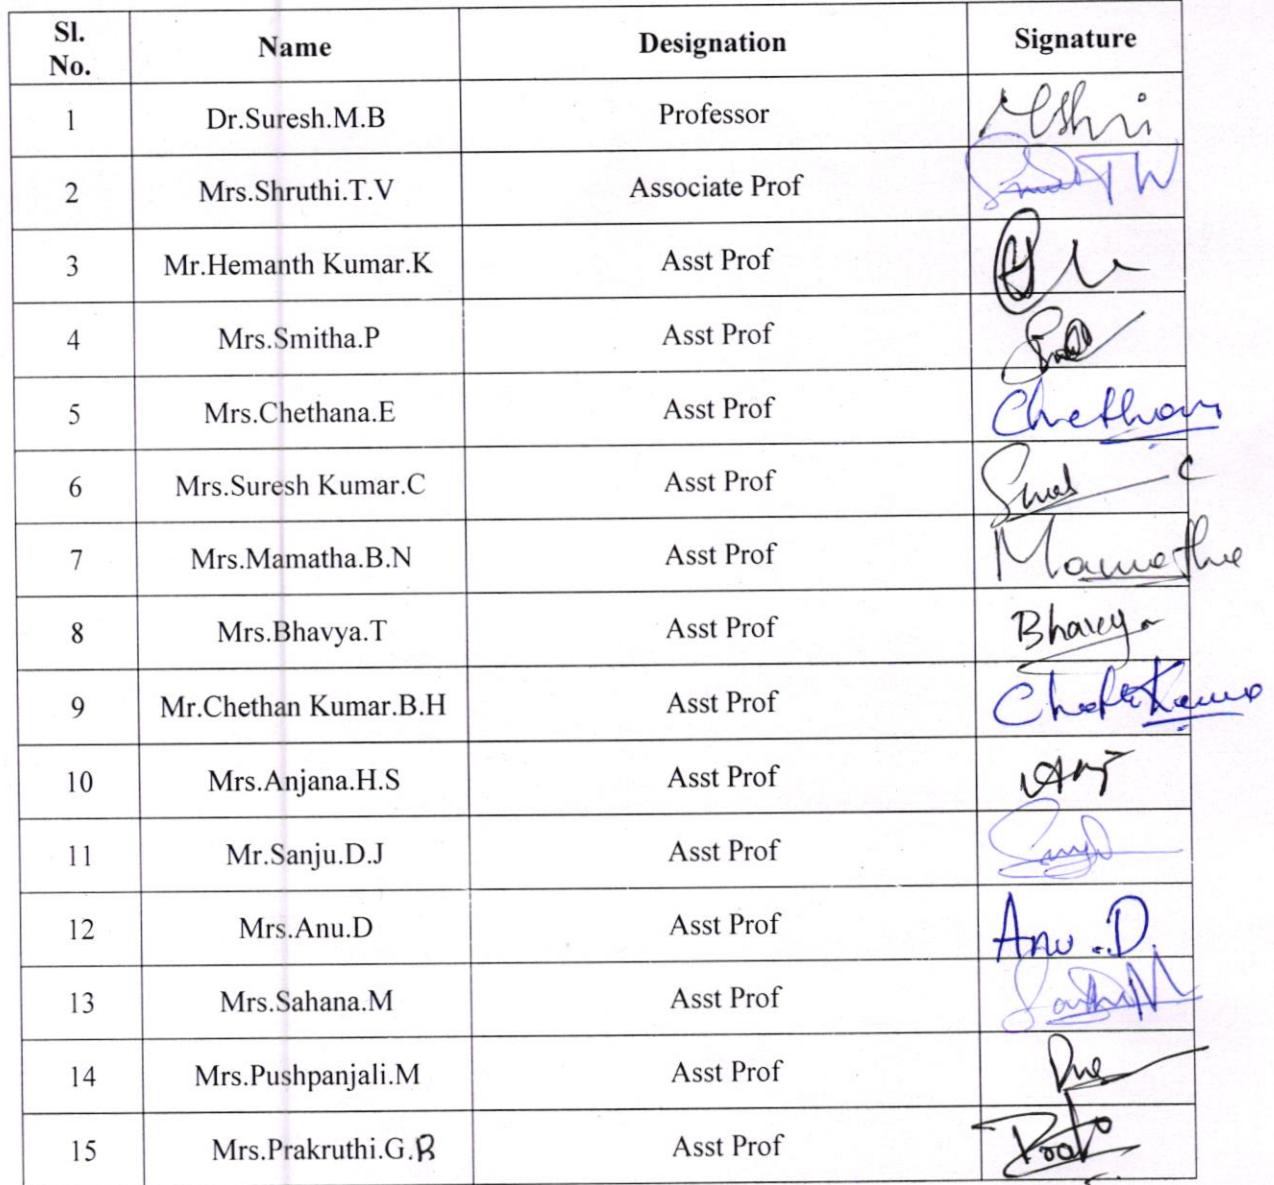 Sl. No. Name Designation Signature
1 Dr.Suresh.M.B Professor
2 Mrs.Shruthi.T.V Associate Prof
3 Mr.Hemanth Kumar.K Asst Prof
4 Mrs.Smitha.P Asst Prof
5 Mrs.Chethana.E Asst Prof
6 Mrs.Suresh Kumar.C Asst Prof
7 Mrs.Mamatha.B.N Asst Prof Mamatha
8 Mrs.Bhavya.T Asst Prof Bhavya
9 Mr.Chethan Kumar.B.H Asst Prof
10 Mrs.Anjana.H.S Asst Prof
11 Mr.Sanju.D.J Asst Prof
12 Mrs.Anu.D Asst Prof Anu.D
13 Mrs.Sahana.M Asst Prof
14 Mrs.Pushpanjali.M Asst Prof
15 Mrs.Prakruthi.G.R Asst Prof